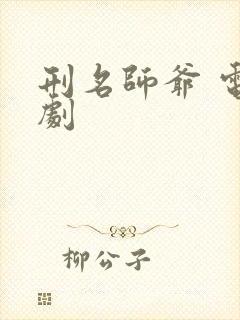 刑名師爺 電
劇
柳公子